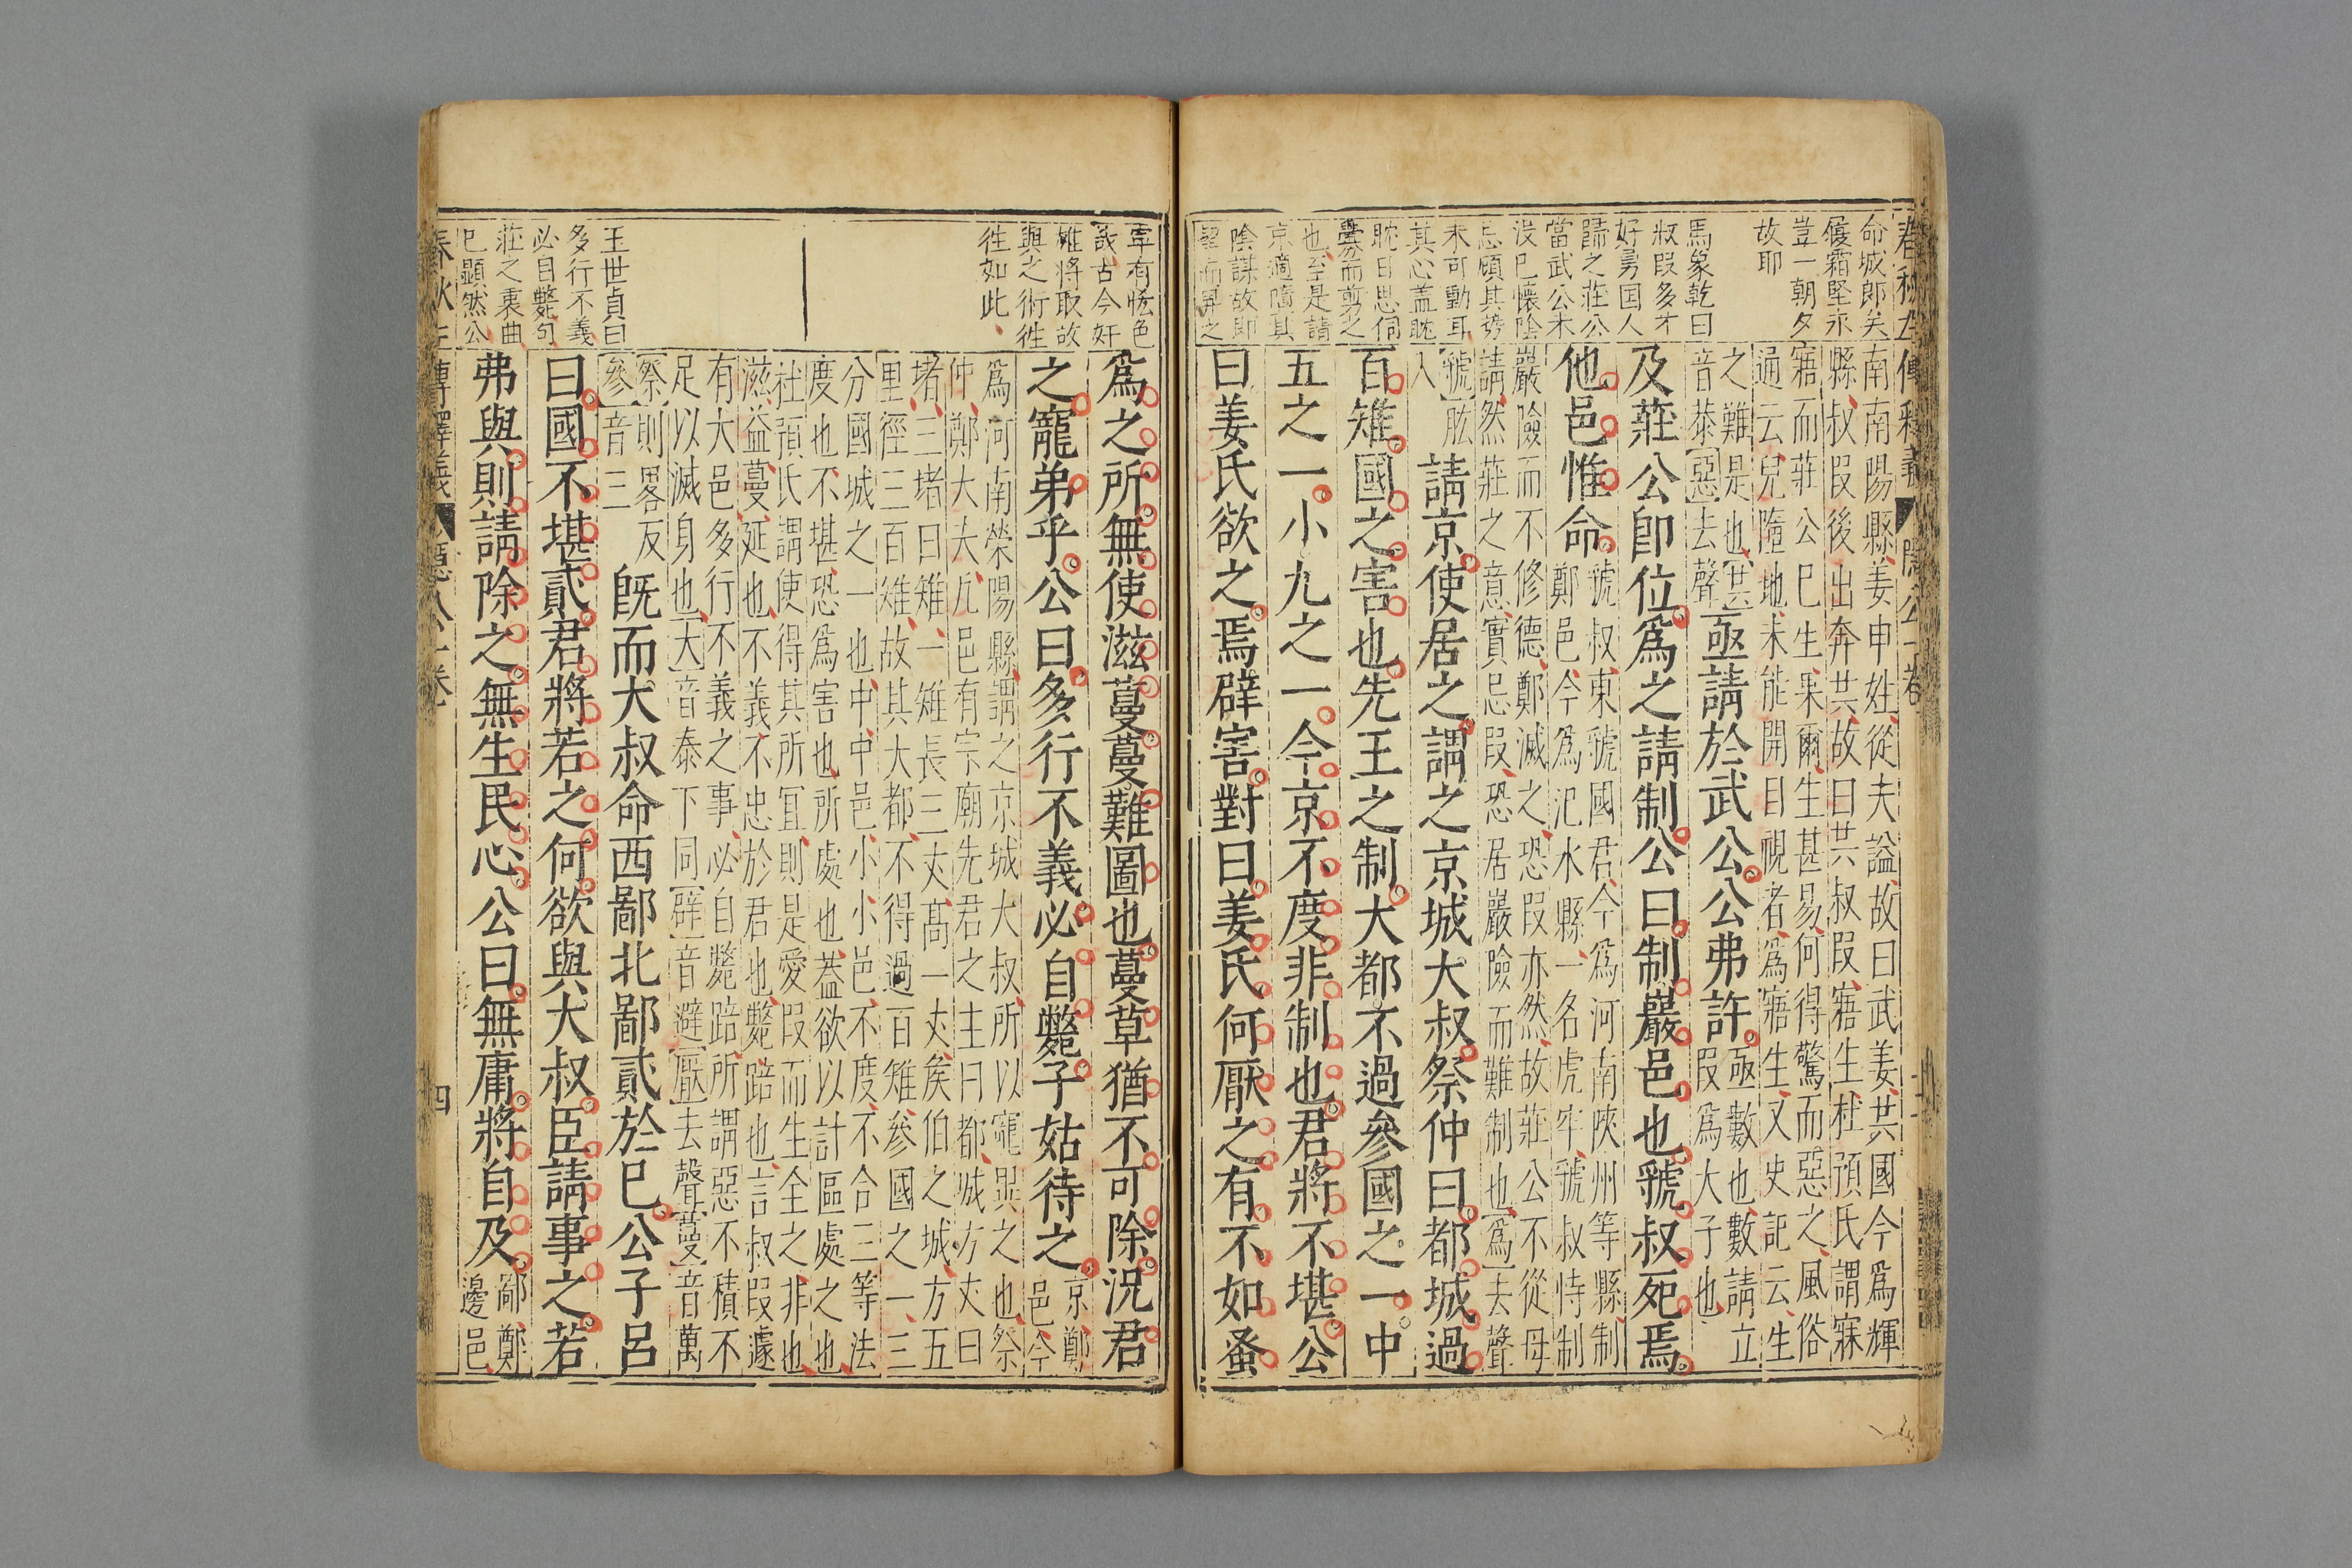 春秋左傳釋義 隱公一卷
命城郎矣
履霜堅氷
豈一朝夕
故耶
馮象乾曰
叔段多才
好勇国人
歸之莊公
當武公未
没已懷隂
忌顧其謗
未可動耳
其心盖眈
眈日思伺
釁而剪之
也至是請
京適墮其
陰謀故即
南南陽縣、姜申姓、從夫謚、故曰武姜、共國今爲輝
縣、叔段後出奔共、故曰共叔段、寤生、杜預氏謂寐
寤而莊公已生、果爾、生甚易、何得驚而惡之、風俗
通云、兒墮地未能開目視者、爲寤生、又史記云、生
之難是也、共
音恭惡去聲
亟請於武公。公弗許。
亟數也、數請立
段爲大子也、
及莊公卽位。爲之請制。公曰。制。巖邑也。虢叔死焉。
他邑惟命。
虢叔東虢國君、今爲河南陝州等縣、制
鄭邑、今爲汜水縣、一名虎牢、虢叔恃制
巖險而不修德、鄭滅之、恐段亦然、故莊公不從母
請、然莊之意、實忌段、恐居巖險而難制也、爲去聲
虢
音肱
入
請京。使居之。謂之京城大叔。祭仲曰。都城過
百雉。國之害也。先王之制。大都。不過參國之一。中
五之一。小九之一。今京不度。非制也。君將不堪。公
曰。姜氏欲之。焉辟害。對曰。姜氏何厭之有。不如蚤
宰有恠色
哉古今奸
雄將取故
與之術徃
徃如此、
王世貞曰
多行不義
必自斃句
莊之衷曲
已顯然公
爲之所。無使滋蔓。蔓。難圖也。蔓草猶不可除。況君
之寵弟乎。公曰。多行不義。必自斃。子姑待之。
京、鄭
邑、今
爲河南榮陽縣、謂之京城大叔、所以寵異之也、祭
仲、鄭大夫、凡邑有宗廟先君之主曰都、城方丈曰
堵、三堵曰雉、一雉長三丈、髙一丈、矦伯之城、方五
里、徑三百雉、故其大都、不得過百雉、參國之一、三
分國城之一也、中、中邑、小、小邑、不度、不合三等法
度也、不堪、恐爲害也、所處也、葢欲以計區處之也、
杜預氏謂使得其所冝、則是愛段而生全之、非也、
滋、益、蔓、延也、不義、不忠於君也、斃、踣也、言叔段遽
有大邑、多行不義之事、必自斃踣、所謂惡不積不
足以滅身也、大音泰下同、辟音避厭去聲蔓音萬
祭則畧反
參音三
旣而大叔命西鄙北鄙貳於巳。公子呂
曰。國不堪貳。君將若之何。欲與大叔。臣請事之。若
弗與。則請除之。無生民心。公曰。無庸。將自及。
鄙、鄭
邊邑、
春秋左傳釋義 隱公一卷 四